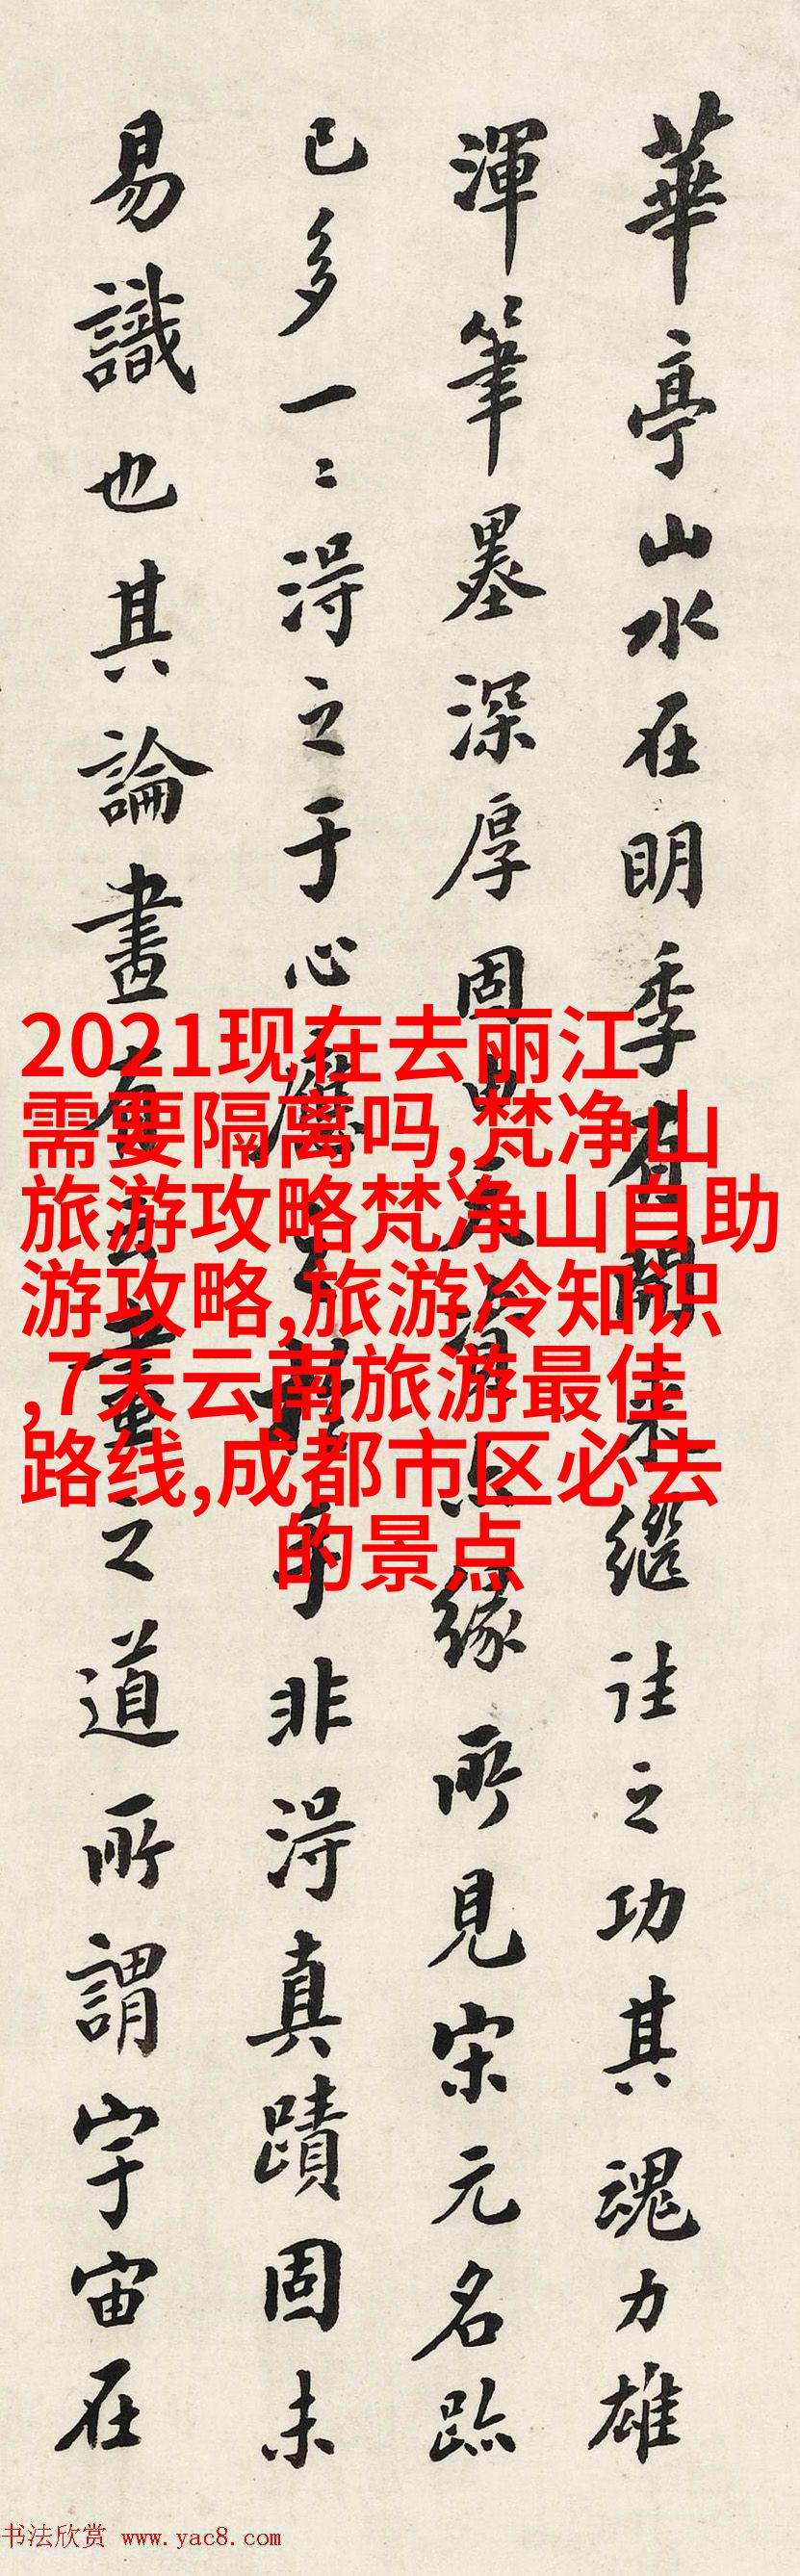 華亭山水在明季有開来繼往之功其魂力雄
渾筆墨深厚固由天資亦緣所見宋元名跡
已多一〻得之于心應之於手非得真蹟固未
易識也其論畫有云畫之道所謂宇宙在
2021现在去丽江
需要隔离吗,梵净山
旅游攻略梵净山自助
游攻略,旅游冷知识
,7天云南旅游最佳
路线,成都市区必去
的景点
书法欣赏 www.yac8.com